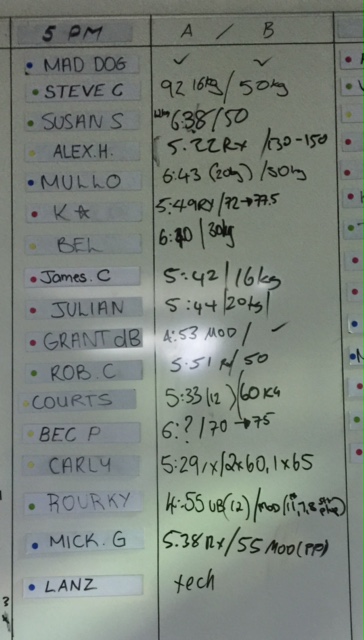 5 PM A / B
MAD DOG ✓ ✓
STEVE G 92 16kg / 50kg
SUSAN S 6:38/50
ALEX.H. 5:22 Rx /130-150
MULLO 6:43 (20kg)/50kg
K☆ 5:49 RX/72→77.5
BEL 30kg
James.C 5:42/16kg
JULIAN 5:44/20kg
GRANT dB 4:53 MOD / ✓
ROB.C 5:51 /50
COURTS 5:33 (12)/60KG
BEC P 6:?/70→75
CARLY 5:29 rx/2x60,1x65
ROURKY 4:55 UB(12)/MOD
MICK.G 5.38 Rx/55 MOD(PP)
LANZ tech
3